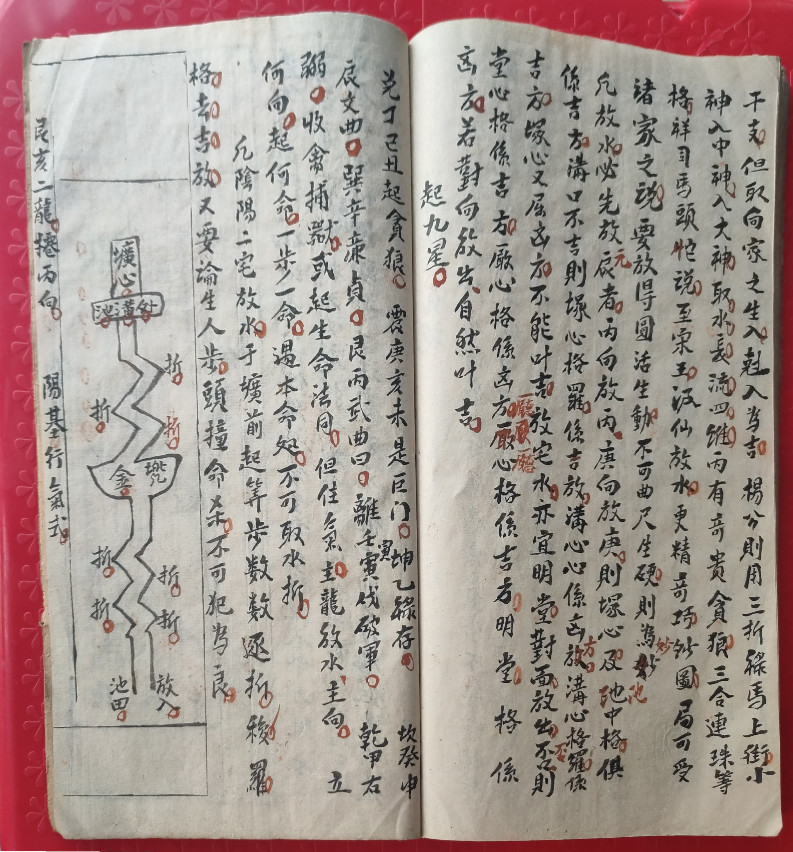 干支但取向家之生入尅入為吉楊公則用三折祿馬上街小
神入中神入大神取水長流四維丙有奇貴貪狼三合連珠等
格祥司馬頭陀說至宋王汲仙放水更精奇巧妙圖局可受
諸家之說要放得圓活生動不可曲尺生硬則為妙
凡放水必先放辰者丙向放丙庚向放庚則塚心及池中格俱
係吉方溝口不吉則塚心格羅係吉放溝心心係凶放溝心格羅係
吉方塚心又屈凶方不能叶吉放宅水亦宜明堂對面放出否則
堂心格係吉方厫心格係凶方厫心格係吉方明堂格係
凶方若對向放出自然叶吉
起九星
兌丁己丑起貪狼震庚亥未是巨门坤乙祿存坎癸申
辰文曲巽辛廉貞艮丙武曲曰離壬寅戌破軍乾甲右
弼收禽捕獸或起生命法同但住氣主龍放水主向立
何向起何命一步一命過本命処不可取水折
凡陰陽二宅放水于壙前起算步数数逐折移羅
格去吉放又要論生人步頭撞命杀不可犯為良
壙心
池溝針
折
折
折
金
甃
折
折
折
折
池田
放入
艮亥二龍捲丙向
陽基行氣式